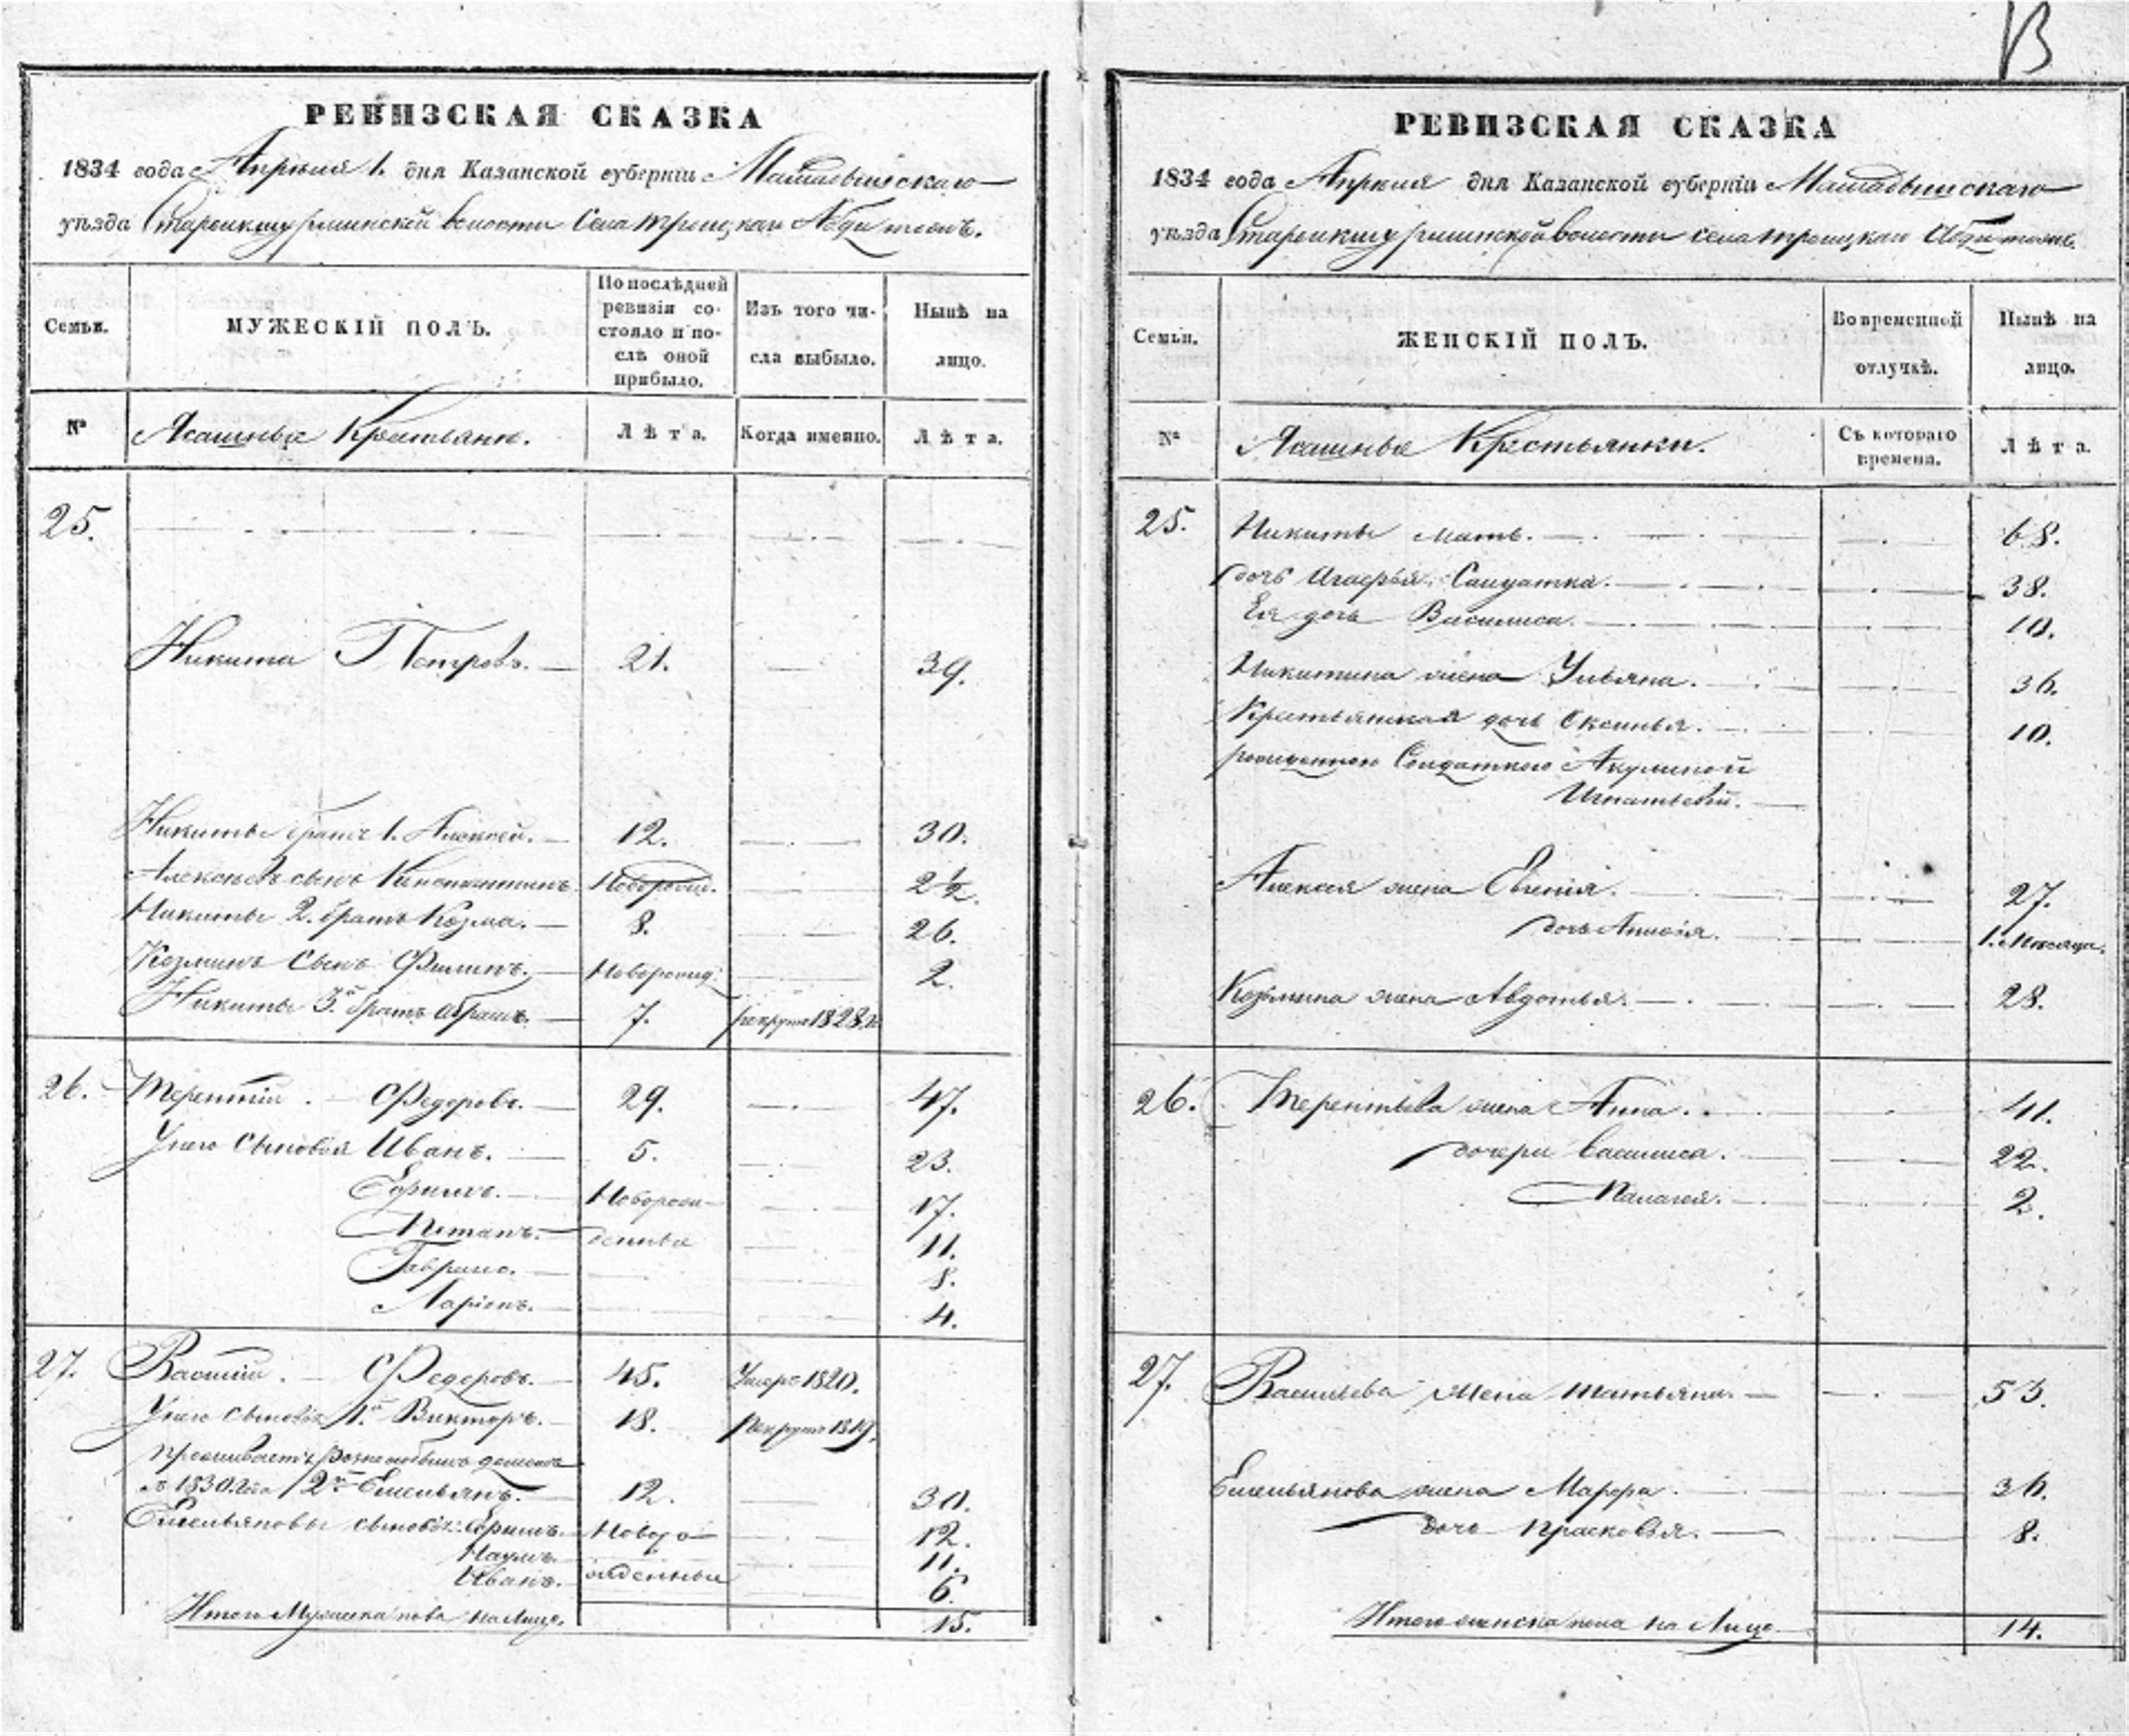 В
РЕВИЗСКАЯ СКАЗКА
1834 года Апреля 1. дня Казанской губерніи Мамадышскаго
уѣзда волости Села Троицкаго
Семьи.
МУЖЕСКІЙ ПОЛЪ.
По послѣдней ревизіи состояло и послѣ оной прибыло.
Изъ того числа выбыло.
Нынѣ на лицо.
№ Ясашныя Крестьяне. Лѣта. Когда именно. Лѣта.
25.
Никита Петровъ. 21. 39.
Никиты братъ 1. Алексей. 12. 30.
Алексеевъ сынъ Новорожд. 2½.
Никиты 2. братъ Козма. 8. 26.
Козминъ Сынъ Филипъ. Новорожд. 2.
Никиты 3й братъ Абрамъ. 7. рекрутъ 1828.
26. Терентій Федоровъ. 29. 47.
У него Сыновья Иванъ. 5. 23.
Ефимъ. Новорож- 17.
денные 11.
Гаврило. 8.
Ларіонъ. 4.
27. Василій Федоровъ. 45. Умеръ 1820.
У него сыновья 1й Викторъ. 18. Рекрутъ 1819.
проживаетъ домомъ
с 1830 года 2й Емельянъ. 12. 30.
Емельяновы сыновья: Ефимъ. Новоро 12.
Наумъ. 11.
Иванъ. жденныя 6.
Итого Мужеска пола на Лицо. 15.
РЕВИЗСКАЯ СКАЗКА
1834 года Апреля дня Казанской губерніи Мамадышскаго
уѣзда волости села Троицкаго
Семьи.
ЖЕНСКІЙ ПОЛЪ.
Во временной отлучкѣ.
Нынѣ на лицо.
№ Ясашныя Крестьянки. Съ котораго времени. Лѣта.
25. Никиты мать. 68.
дочь Солдатка. 38.
Ея дочь Василиса. 10.
Никитина жена Ульяна. 36.
Крестьянская дочь Оксинья. 10.
рожденною Солдаткою Акулиной
Игнатьевой.
Алексея жена Евгенія. 27.
дочь 1. Месяца.
Козьмина жена Авдотья. 28.
26. Терентьева жена Анна. 41.
дочери Василиса. 22.
Палагея. 2.
27. Васильева Жена Татьяна. 53.
Емельянова жена Марфа. 36.
дочь Прасковья. 8.
Итого женска пола на Лицо. 14.